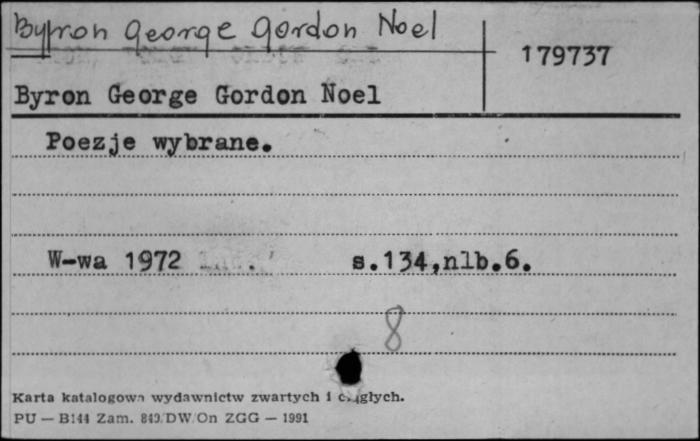 Byron George Gordon Noel
179737
Byron George Gordon Noel
Poezje wybrane.
W-wa 1972 s.134,nlb.6.
8
Karta katalogowa wydawnictw zwartych i ciągłych.
PU — B144 Zam. 849/DW/On ZGG — 1991